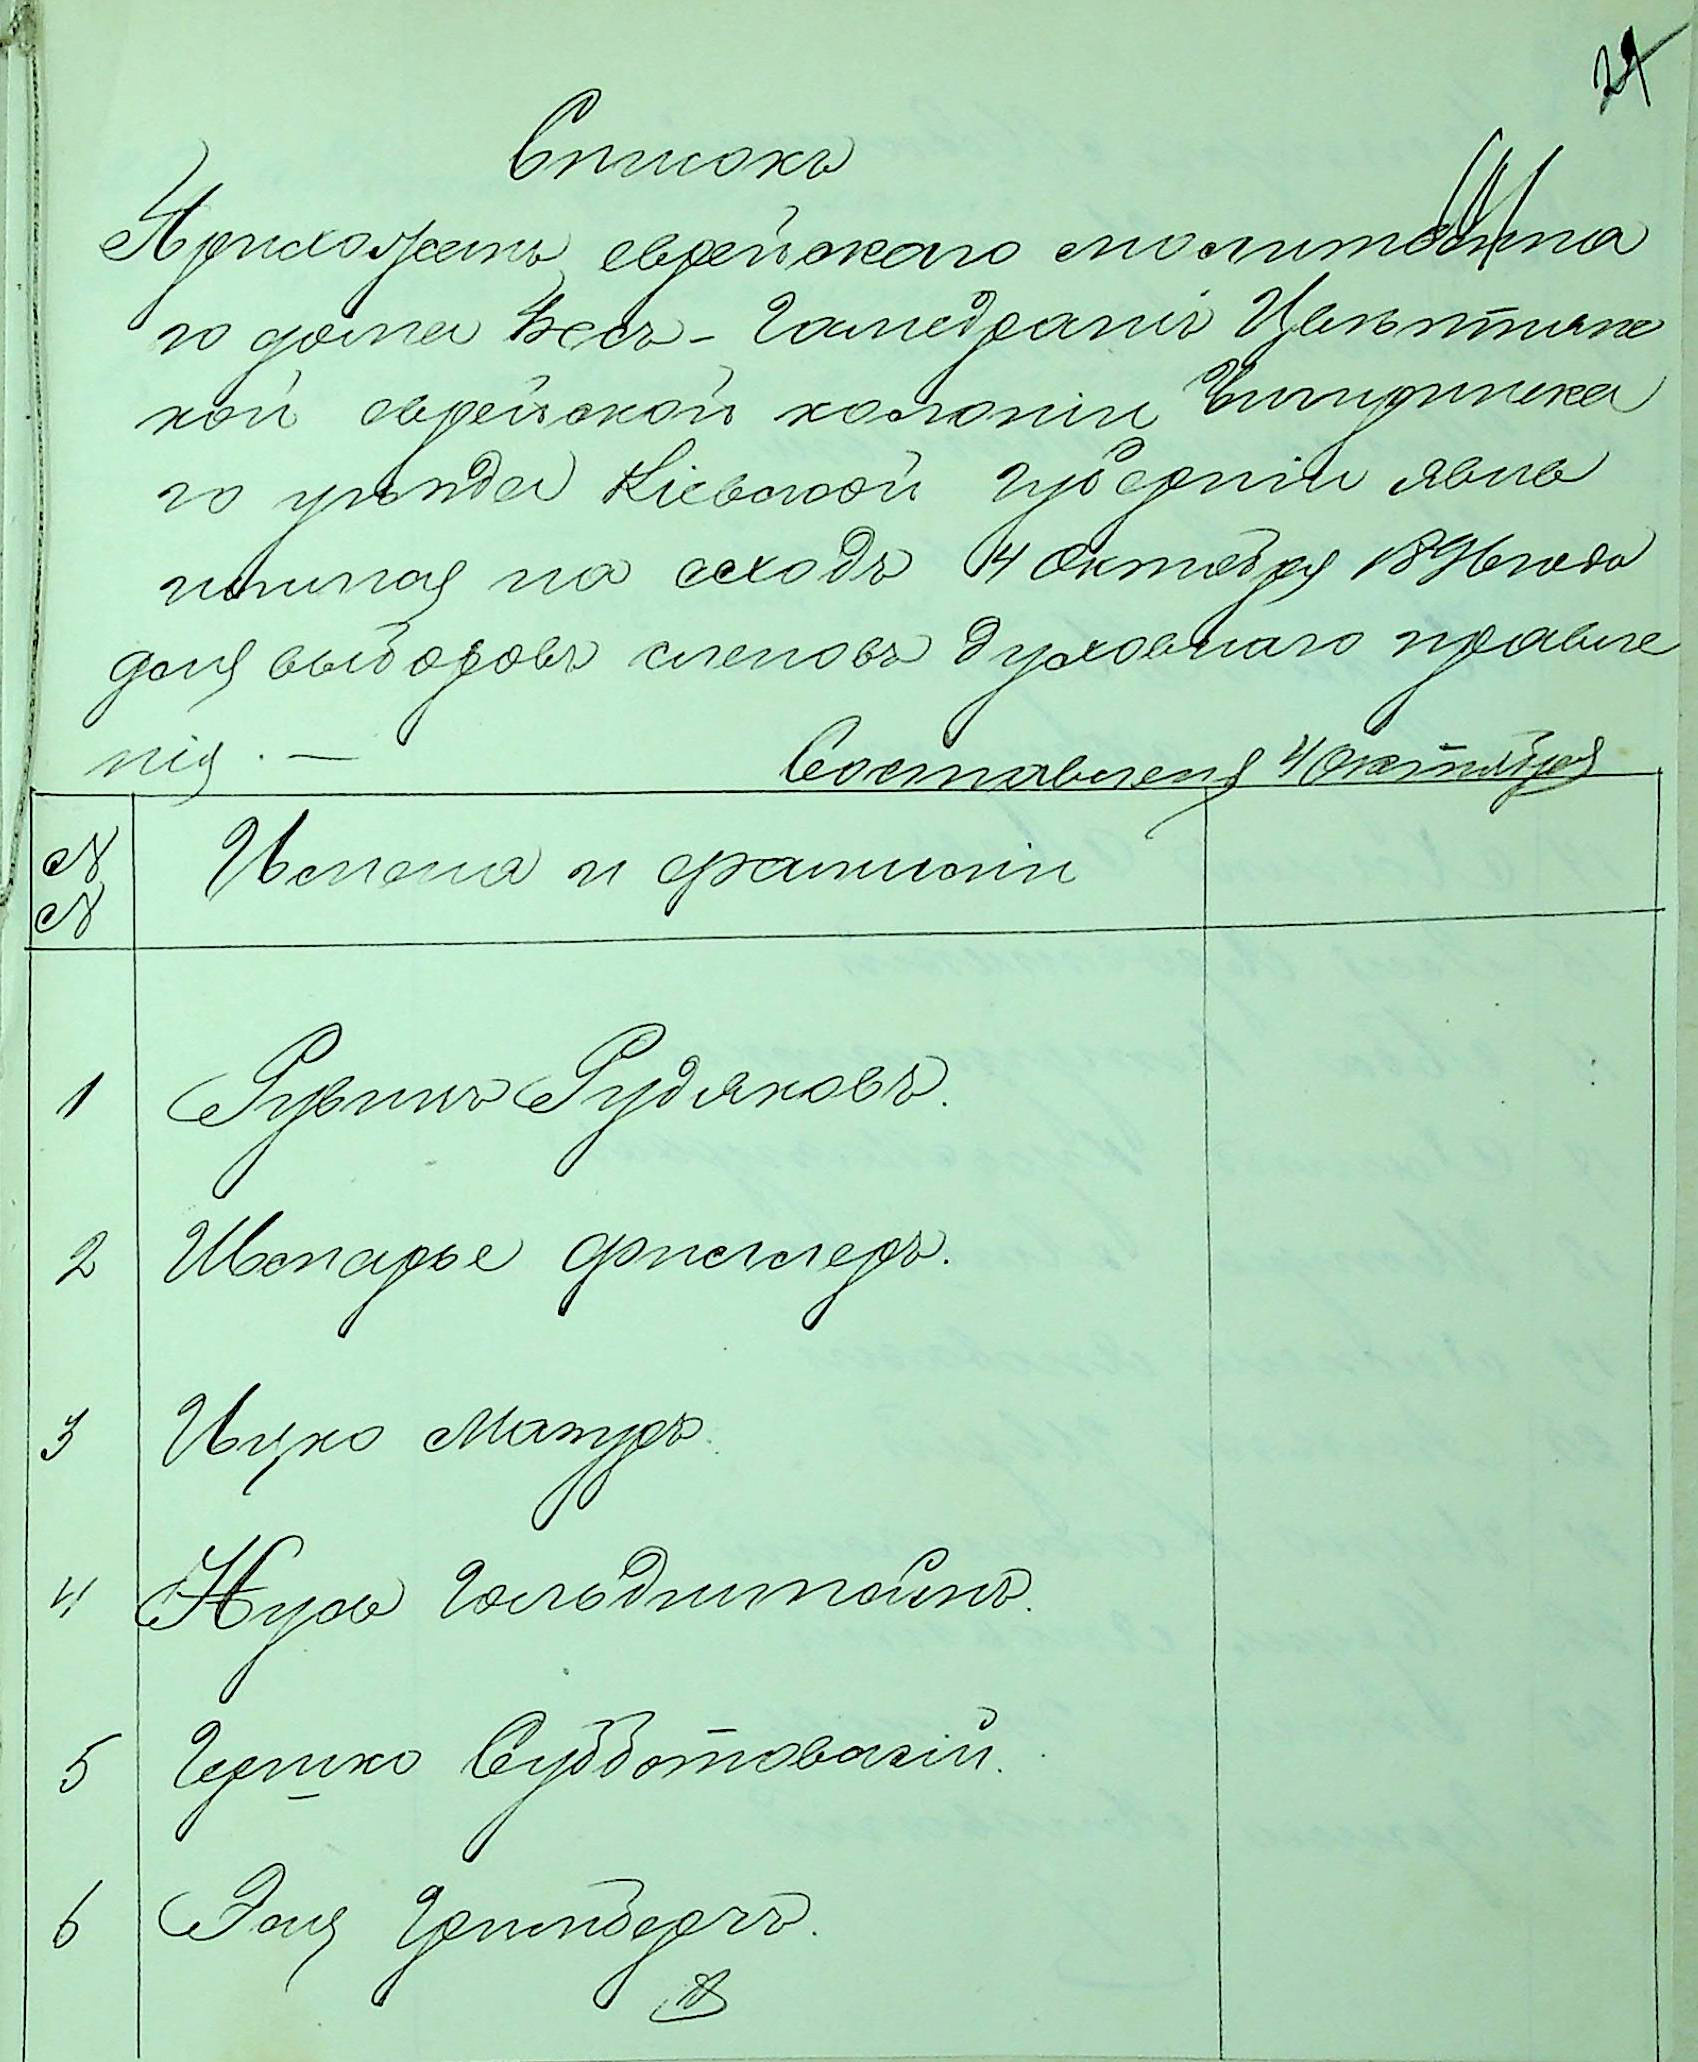 24
Списокъ
Прихожанъ еврейскаго молитвенна
го дома Бесъ-Гамедрашъ
кой еврейской колоніи Чигиринска
го уѣзда Кіевской губерніи явив
шихся на сходъ 4 Октября 1896 года
для выборовъ членовъ духовнаго правле
нія. — Составленъ 4 Октября
№ № Имена и фамиліи
1 Рувинъ Рудяковъ.
2 Шмарье Фишлеръ.
3 Ицко Мазуръ.
4 Нусь Гольдштейнъ.
5 Гершко Субботовскій.
6 Эля Гринбергъ.